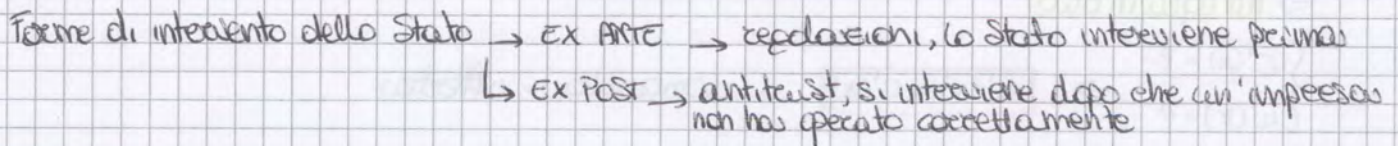 Forme di intervento dello Stato → EX ANTE → regolazioni, lo Stato interviene prima
↳ EX POST → antitrust, si interviene dopo che un'impresa
non ha operato correttamente